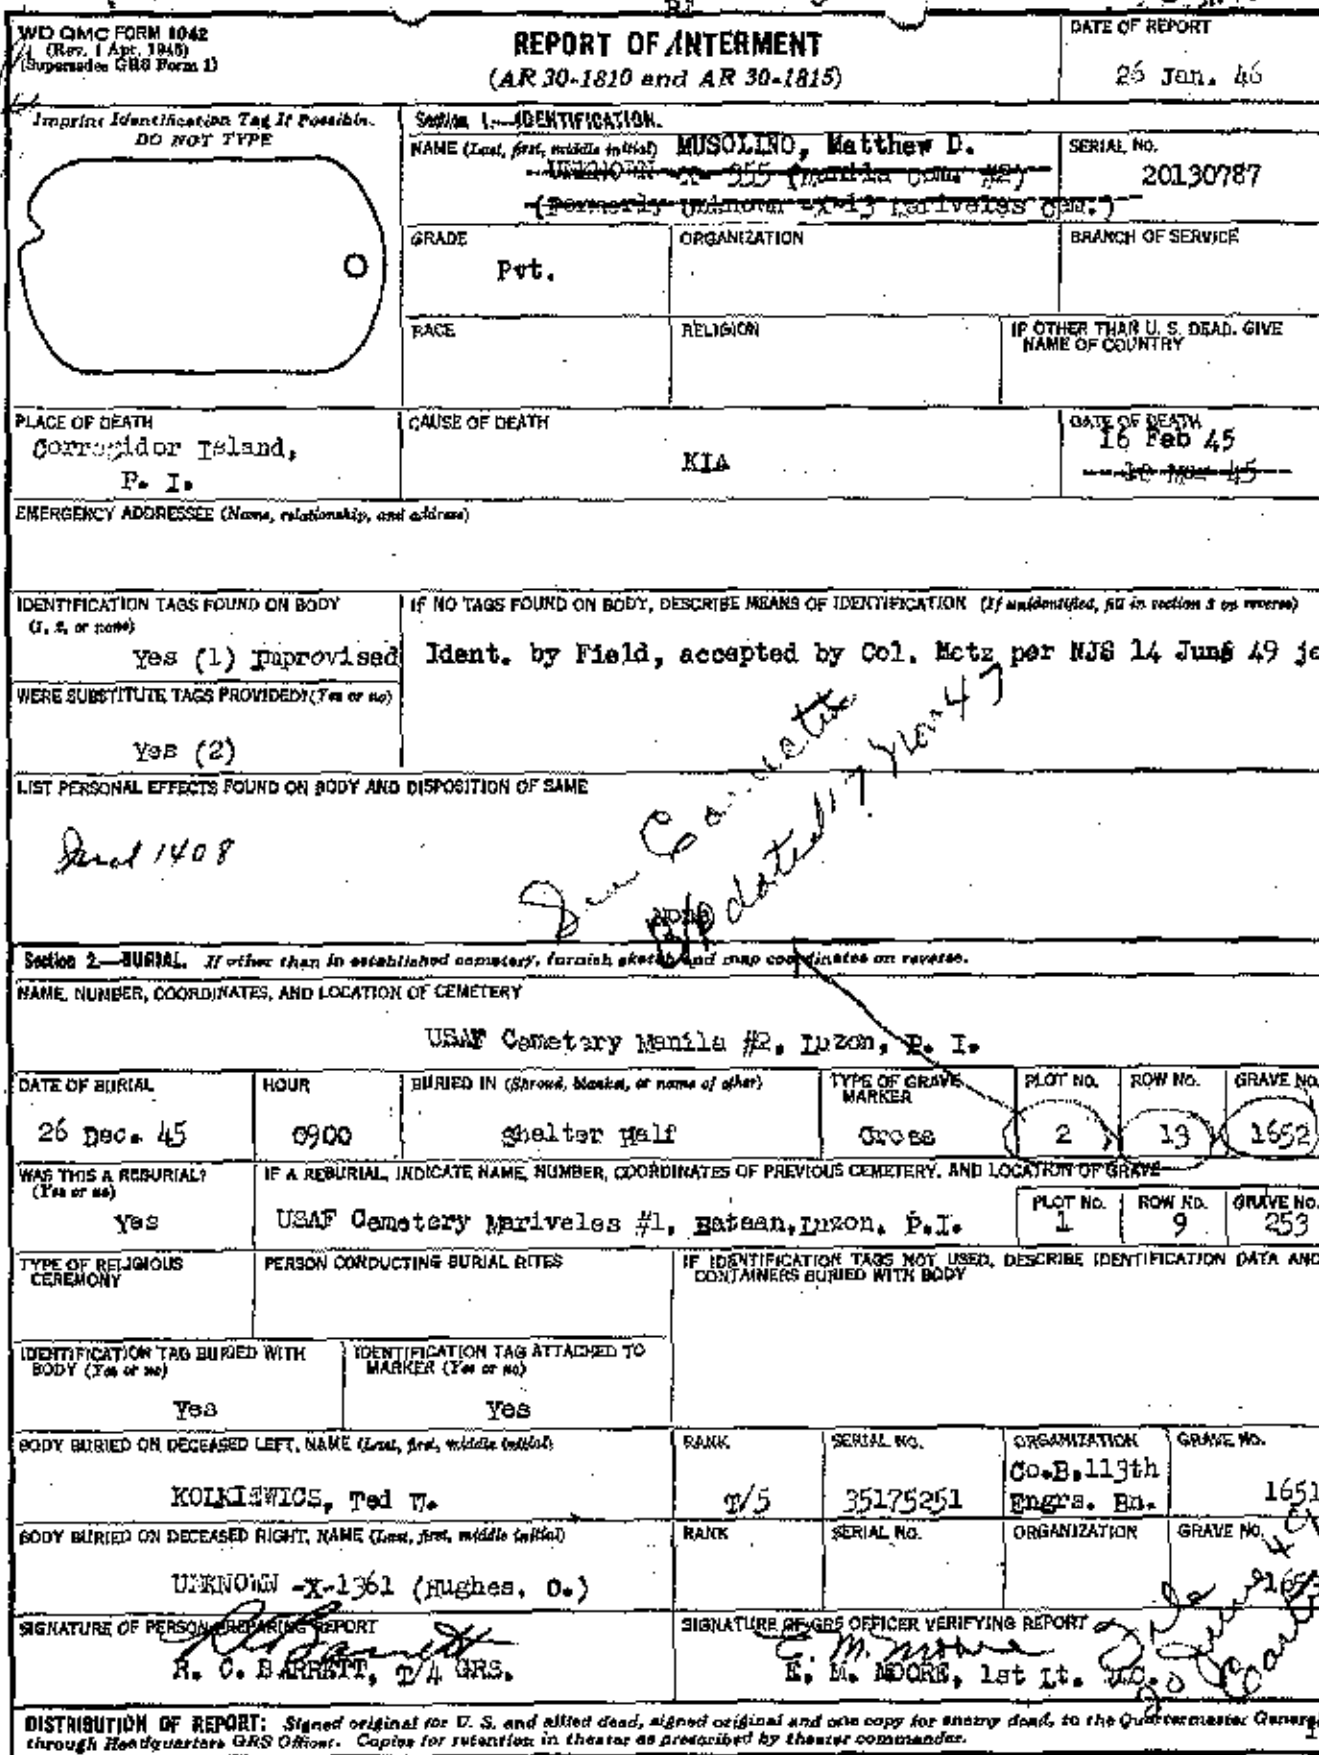 WD QMC FORM 1042
(Rev. 1 Apr. 1945)
(Supersedes GRS Form 1)
REPORT OF INTERMENT
(AR 30-1810 and AR 30-1815)
DATE OF REPORT
26 Jan. 46
Imprint Identification Tag If Possible.
DO NOT TYPE
Section 1.—IDENTIFICATION.
NAME (Last, first, middle initial) MUSOLINO, Matthew D.
UNKNOWN X-955 (Manila Cem. #2)
(Formerly Unknown -X-13 Mariveles Cem.)
SERIAL NO.
20130787
GRADE
Pvt.
ORGANIZATION
BRANCH OF SERVICE
RACE
RELIGION
IF OTHER THAN U. S. DEAD, GIVE
NAME OF COUNTRY
PLACE OF DEATH
Corregidor Island,
P. I.
CAUSE OF DEATH
KIA
DATE OF DEATH
16 Feb 45
45
EMERGENCY ADDRESSEE (Name, relationship, and address)
IDENTIFICATION TAGS FOUND ON BODY
(1, 2, or none)
Yes (1) Improvised
IF NO TAGS FOUND ON BODY, DESCRIBE MEANS OF IDENTIFICATION (If unidentified, fill in section 3 on reverse)
Ident. by Field, accepted by Col. Motz per NJS 14 June 49 je
WERE SUBSTITUTE TAGS PROVIDED? (Yes or no)
Yes (2)
LIST PERSONAL EFFECTS FOUND ON BODY AND DISPOSITION OF SAME
1408
dated 17 47
None
Section 2.—BURIAL. If other than in established cemetery, furnish sketch and map coordinates on reverse.
NAME, NUMBER, COORDINATES, AND LOCATION OF CEMETERY
USAF Cemetery Manila #2, Luzon, P. I.
DATE OF BURIAL
26 Dec. 45
HOUR
0900
BURIED IN (Shroud, blanket, or name of other)
Shelter Half
TYPE OF GRAVE
MARKER
Cross
PLOT NO.
2
ROW NO.
13
GRAVE NO.
1652
WAS THIS A REBURIAL?
(Yes or no)
Yes
IF A REBURIAL, INDICATE NAME, NUMBER, COORDINATES OF PREVIOUS CEMETERY, AND LOCATION OF GRAVE
USAF Cemetery Mariveles #1, Bataan, Luzon, P.I.
PLOT NO.
1
ROW NO.
9
GRAVE NO.
253
TYPE OF RELIGIOUS
CEREMONY
PERSON CONDUCTING BURIAL RITES
IF IDENTIFICATION TAGS NOT USED, DESCRIBE IDENTIFICATION DATA AND
CONTAINERS BURIED WITH BODY
IDENTIFICATION TAG BURIED WITH
BODY (Yes or no)
Yes
IDENTIFICATION TAG ATTACHED TO
MARKER (Yes or no)
Yes
BODY BURIED ON DECEASED LEFT, NAME (Last, first, middle initial)
KOLKIEWICS, Ted W.
RANK
T/5
SERIAL NO.
35175251
ORGANIZATION
Co.B,113th
Engrs. Bn.
GRAVE NO.
1651
BODY BURIED ON DECEASED RIGHT, NAME (Last, first, middle initial)
UNKNOWN -X-1361 (Hughes, O.)
RANK
SERIAL NO.
ORGANIZATION
GRAVE NO.
1653
SIGNATURE OF PERSON PREPARING REPORT
R. C. BARRETT, T/4 GRS.
SIGNATURE OF GRS OFFICER VERIFYING REPORT
E. M. Moore
E. M. MOORE, 1st Lt.
DISTRIBUTION OF REPORT: Signed original for U. S. and allied dead, signed original and one copy for enemy dead, to the Quartermaster General
through Headquarters GRS Officer. Copies for retention in theater as prescribed by theater commander.